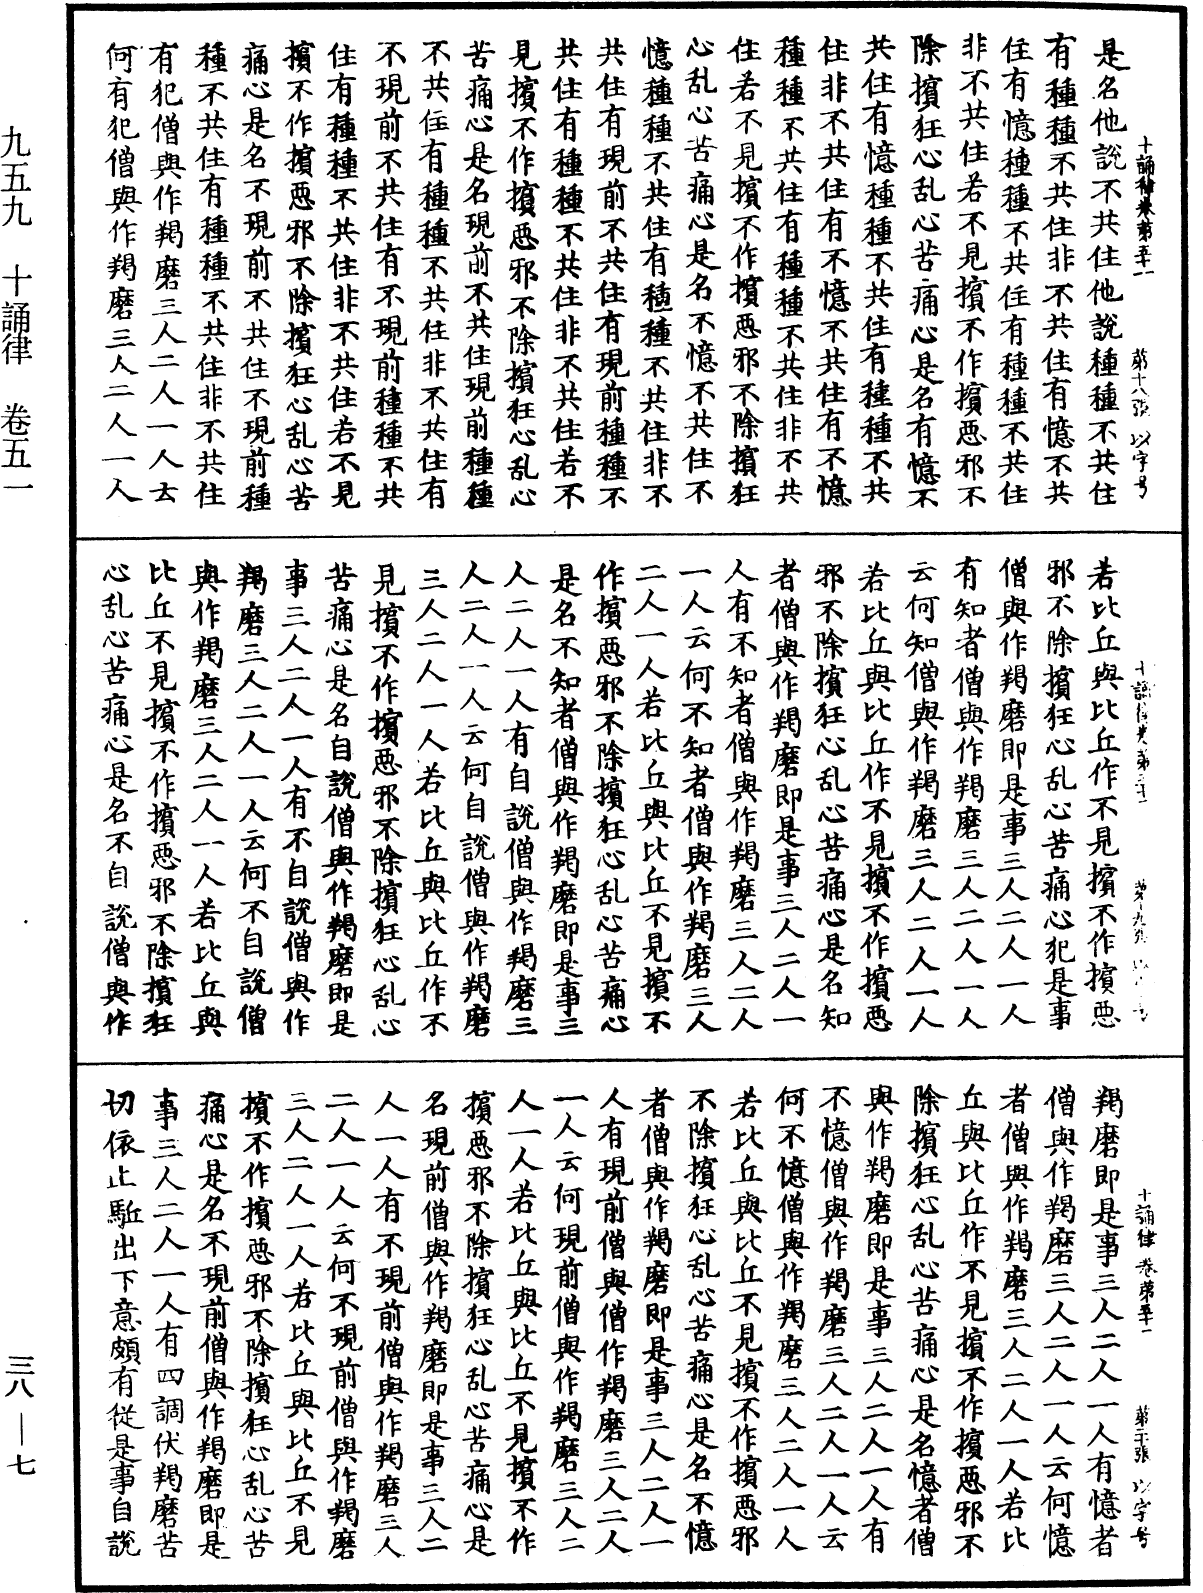 是名他說不共住他說種種不共住
有種種不共住非不共住有憶不共
住有憶種種不共住有種種不共住
非不共住若不見擯不作擯惡邪不
除擯狂心乱心苦痛心是名有憶不
共住有憶種種不共住有種種不共
住非不共住有不憶不共住有不憶
種種不共住有種種不共住非不共
住若不見擯不作擯惡邪不除擯狂
心乱心苦痛心是名不憶不共住不
憶種種不共住有種種不共住非不
共住有現前不共住有現前種種不
共住有種種不共住非不共住若不
見擯不作擯惡邪不除擯狂心乱心
苦痛心是名現前不共住現前種種
不共住有種種不共住非不共住有
不現前不共住有不現前種種不共
住有種種不共住非不共住若不見
擯不作擯惡邪不除擯狂心乱心苦
痛心是名不現前不共住不現前種
種不共住有種種不共住非不共住
有犯僧與作羯磨三人二人一人去
何有犯僧與作羯磨三人二人一人
十誦律卷第五十一 第十八張 以字号
若比丘與比丘作不見擯不作擯惡
邪不除擯狂心乱心苦痛心犯是事
僧與作羯磨即是事三人二人一人
有知者僧與作羯磨三人二人一人
云何知僧與作羯磨三人二人一人
若比丘與比丘作不見擯不作擯惡
邪不除擯狂心乱心苦痛心是名知
者僧與作羯磨即是事三人二人一
人有不知者僧與作羯磨三人二人
一人云何不知者僧與作羯磨三人
二人一人若比丘與比丘不見擯不
作擯惡邪不除擯狂心乱心苦痛心
是名不知者僧與作羯磨即是事三
人二人一人有自說僧與作羯磨三
人二人一人云何自說僧與作羯磨
三人二人一人若比丘與比丘作不
見擯不作擯惡邪不除擯狂心乱心
苦痛心是名自說僧與作羯磨即是
事三人二人一人有不自說僧與作
羯磨三人二人一人云何不自說僧
與作羯磨三人二人一人若比丘與
比丘不見擯不作擯惡邪不除擯狂
心乱心苦痛心是名不自說僧與作
羯磨即是事三人二人一人有憶者
僧與作羯磨三人二人一人云何憶
者僧與作羯磨三人二人一人若比
丘與比丘作不見擯不作擯惡邪不
除擯狂心乱心苦痛心是名憶者僧
與作羯磨即是事三人二人一人有
不憶僧與作羯磨三人二人一人云
何不憶僧與作羯磨三人二人一人
若比丘與比丘不見擯不作擯惡邪
不除擯狂心乱心苦痛心是名不憶
者僧與作羯磨即是事三人二人一
人有現前僧與僧作羯磨三人二人
一人云何現前僧與作羯磨三人二
人一人若比丘與比丘不見擯不作
擯惡邪不除擯狂心乱心苦痛心是
名現前僧與作羯磨即是事三人二
人一人有不現前僧與作羯磨三人
二人一人云何不現前僧與作羯磨
三人二人一人若比丘與比丘不見
擯不作擯惡邪不除擯狂心乱心苦
痛心是名不現前僧與作羯磨即是
事三人二人一人有四調伏羯磨苦
切依止駈出下意頗有從是事自說
十誦律卷第五十一 第二十張 以字号
九五九 十誦律 卷五一
三八—七